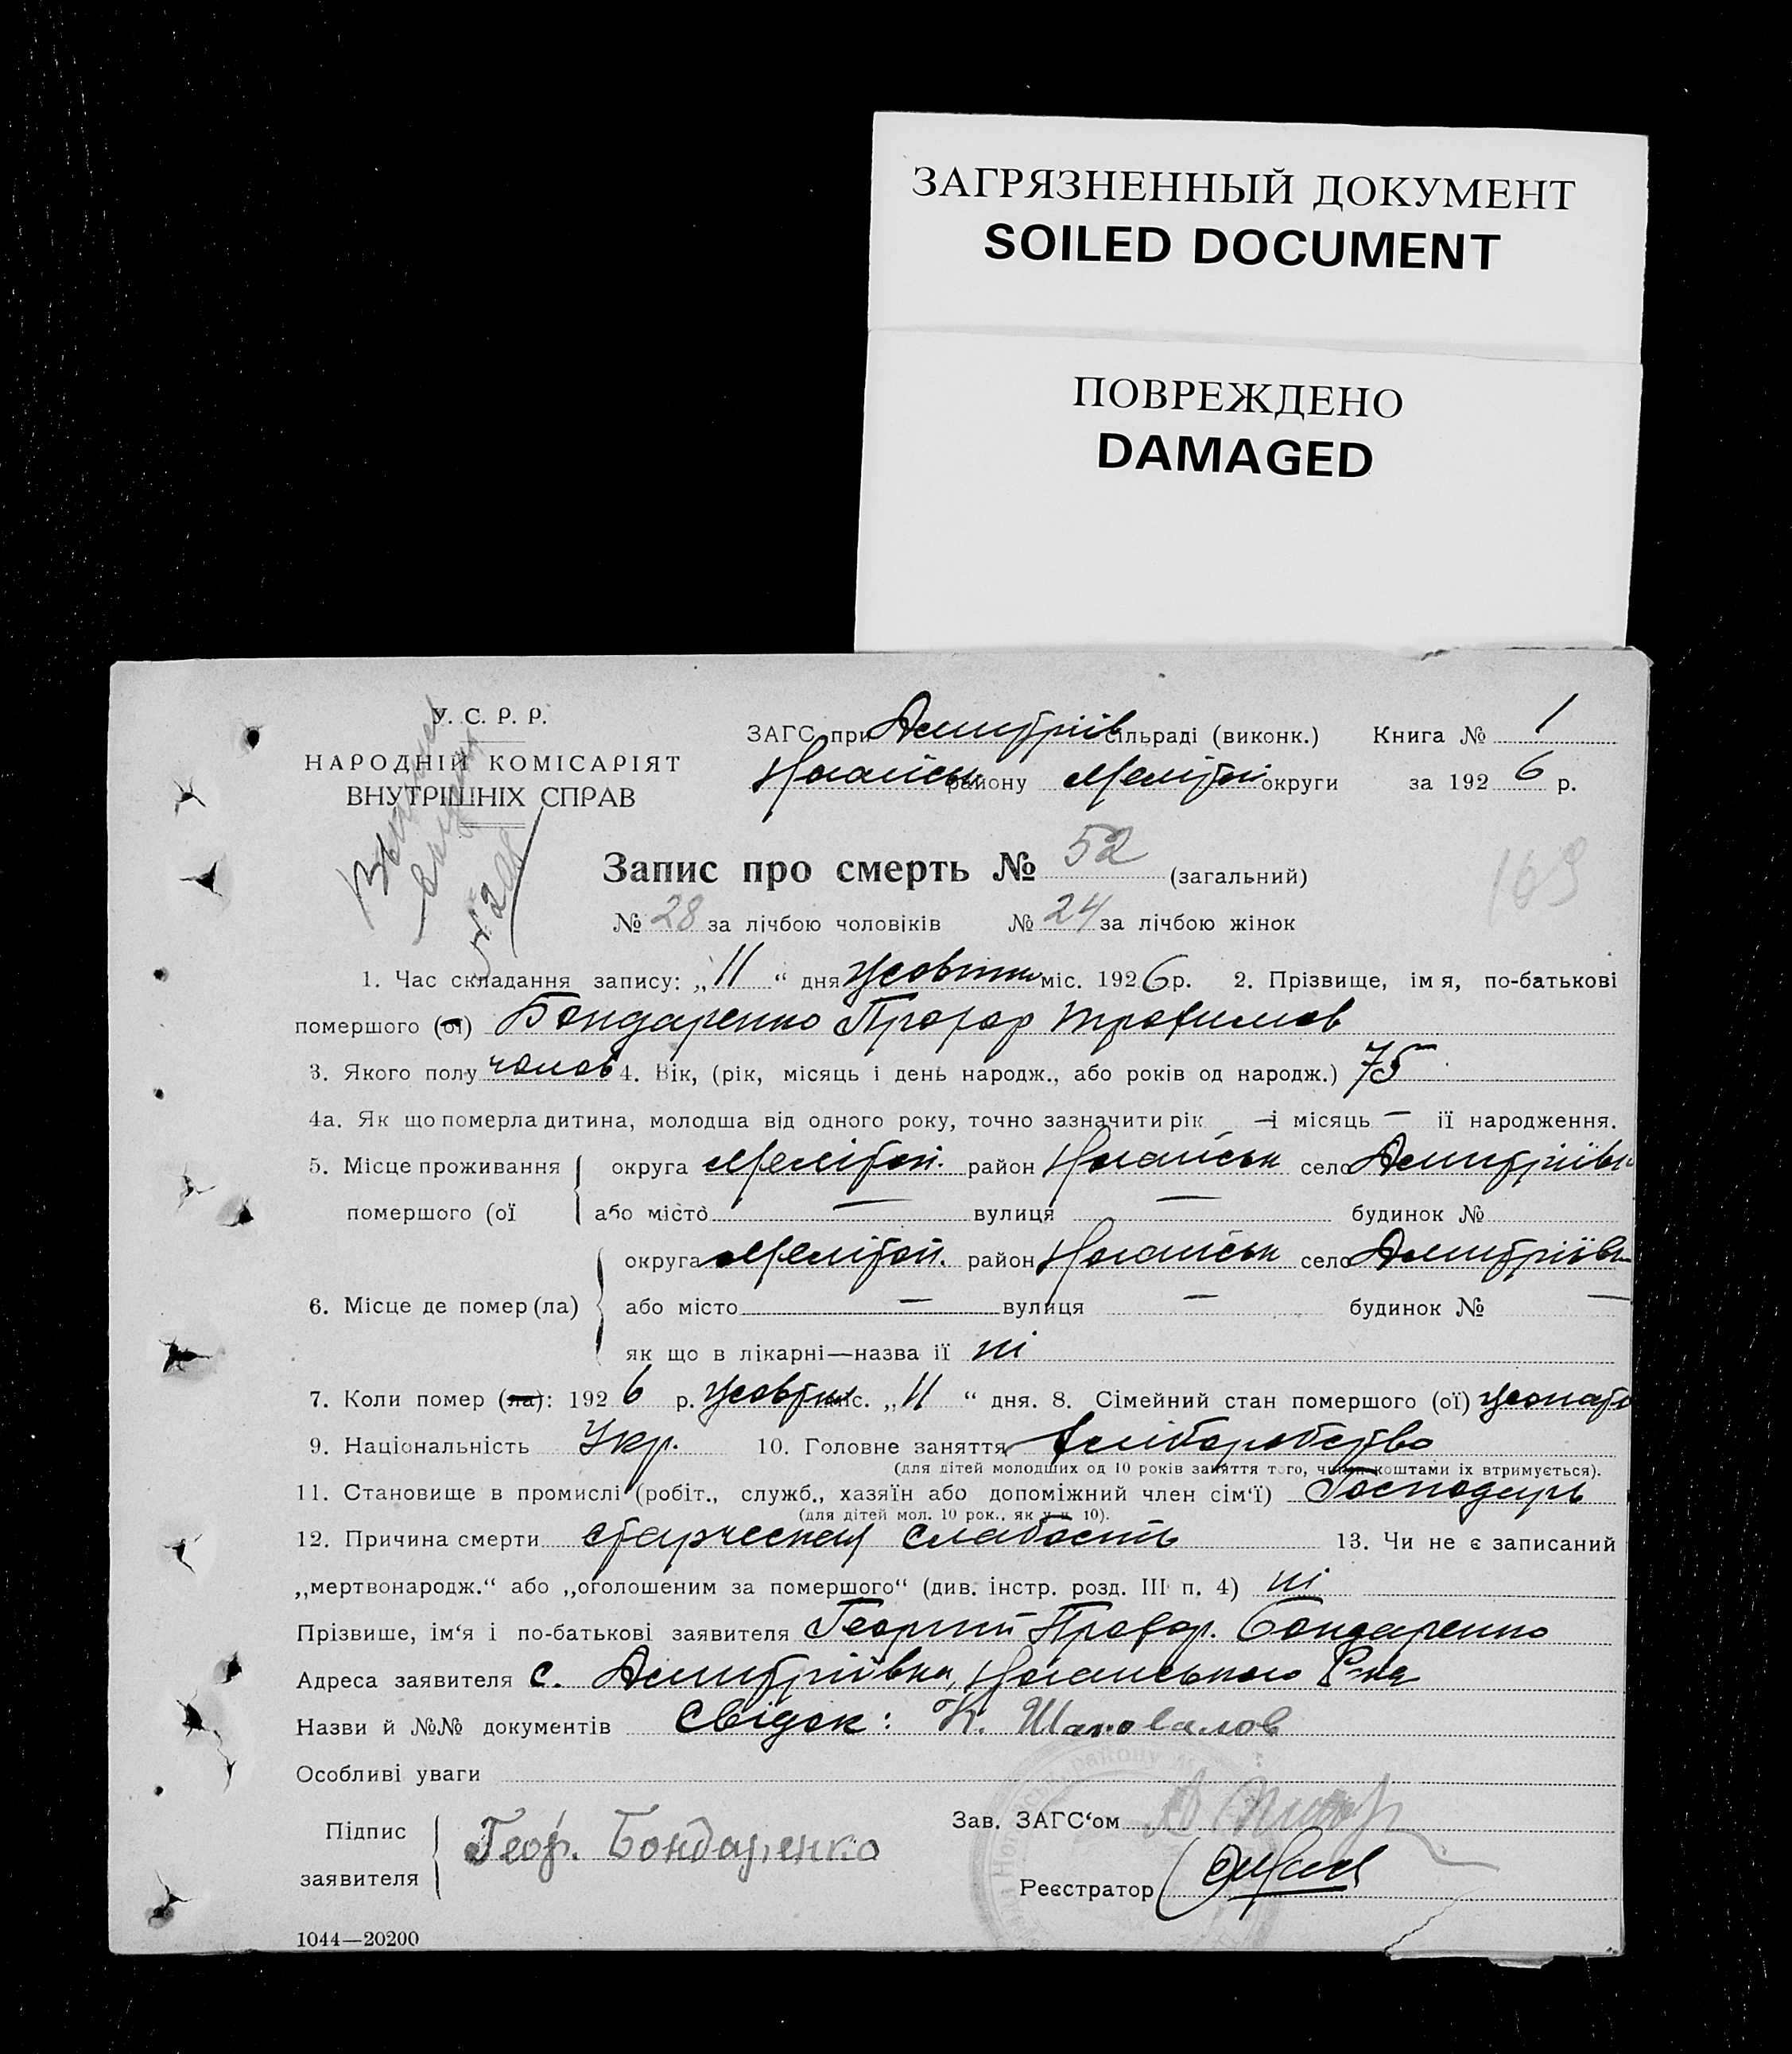 ЗАГРЯЗНЕННЫЙ ДОКУМЕНТ
SOILED DOCUMENT
ПОВРЕЖДЕНО
DAMAGED
У. С. Р. Р.
НАРОДНІЙ КОМІСАРІЯТ
ВНУТРІШНІХ СПРАВ
ЗАГС при Дмитріїв сільраді (виконк.) Книга № 1
Ногайськ району Мелітоп округи за 1926 р.
Запис про смерть № 52 (загальний)
169
№ 28 за лічбою чоловіків № 24 за лічбою жінок
1. Час складання запису: „11“ дня жовтня міс. 1926 р. 2. Прізвище, імя, по-батькові
помершого (ої) Бондаренко Прохор Трофимов
3. Якого полу чолов 4. Вік, (рік, місяць і день народж., або років од народж.) 75
4а. Як що померла дитина, молодша від одного року, точно зазначити рік — і місяць — її народження.
5. Місце проживання округа Мелітоп. район Ногайськ село Дмитріївк
помершого (ої або місто — вулиця — будинок №
округа Мелітоп. район Ногайськ село Дмитріївк
6. Місце де помер (ла) або місто — вулиця — будинок № —
як що в лікарні—назва її ні
7. Коли помер (ла): 1926 р. жовтня міс. „11“ дня. 8. Сімейний стан помершого (ої) жонат
9. Національність Укр. 10. Головне заняття хліборобство
(для дітей молодших од 10 років заняття того, чиїми коштами їх втримується).
11. Становище в промислі (робіт., служб., хазяїн або допоміжний член сім‘ї) Господарь
(для дітей мол. 10 рок., як у п. 10).
12. Причина смерти старческая слабость 13. Чи не є записаний
„мертвонародж.“ або „оголошеним за помершого“ (див. інстр. розд. III п. 4) ні
Прізвише, ім‘я і по-батькові заявителя Георгий Прохор. Бондаренко
Адреса заявителя с. Дмитріївка, Ногайського Р-на
Назви й №№ документів Свідок: К. Шаповалов
Особливі уваги
Підпис
заявителя Геор. Бондаренко
Зав. ЗАГС‘ом
Реєстратор
1044—20200